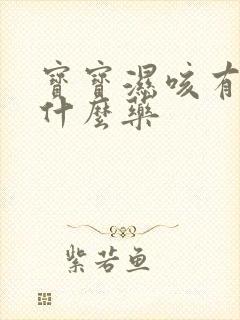 寶寶濕咳有
什麼藥
紫若魚